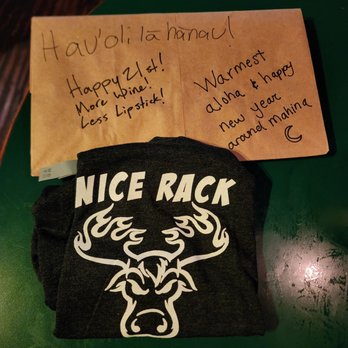 Hau'oli lā hānau!
Happy 21st!
More wine!
Less Lipstick!
Warmest
aloha & happy
new year
around mahina
NICE RACK